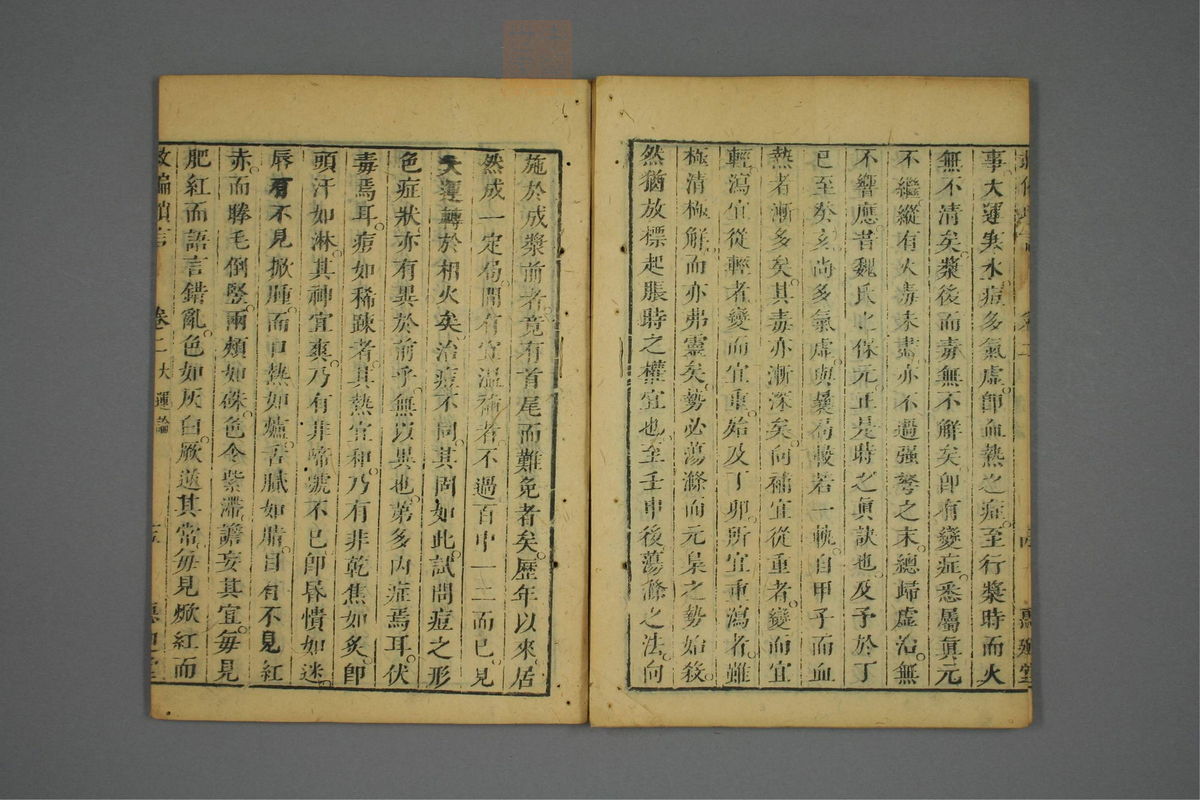 事大運寒水痘多氣虛卽血熱之症至行漿時而火
無不清矣漿後而毒無不解矣卽有變症悉屬眞元
不繼縱有火毒未盡亦不過强弩之末總歸虛治無
不響應昔魏氏止保元正是時之眞訣也及予於丁
巳至癸亥尚多氣虛與曩局較若一軌自甲子而血
熱者漸多矣其毒亦漸深矣向補宜從重者變而宜
輕瀉宜從輕者變而宜重始及丁卯所宜重瀉者雖
極淸極解而亦弗靈矣勢必蕩滌而元梟之勢始殺
然猶放標起脹時之權宜也至壬申後蕩滌之法向
施於成漿前者竟有首尾而難免者矣歷年以來居
然成一定局間有宜溫補者不過百中一二而已見
大運轉於相火矣治痘不同其間如此試問痘之形
色症狀亦有異於前乎無以異也第多內症焉耳伏
毒焉耳痘如稀踈者其熱宜和乃有非乾焦如炙卽
頭汗如淋其神宜爽乃有非啼號不已卽昏憒如迷
唇有不見掀腫而口熱如爐舌膩如脂目有不見紅
赤而睫毛倒豎兩頰如硃色令紫滯譫妄其宜每見
肥紅而語言錯亂色如灰白厥逆其常每見焮紅而
救偏瑣言 卷二 大運論